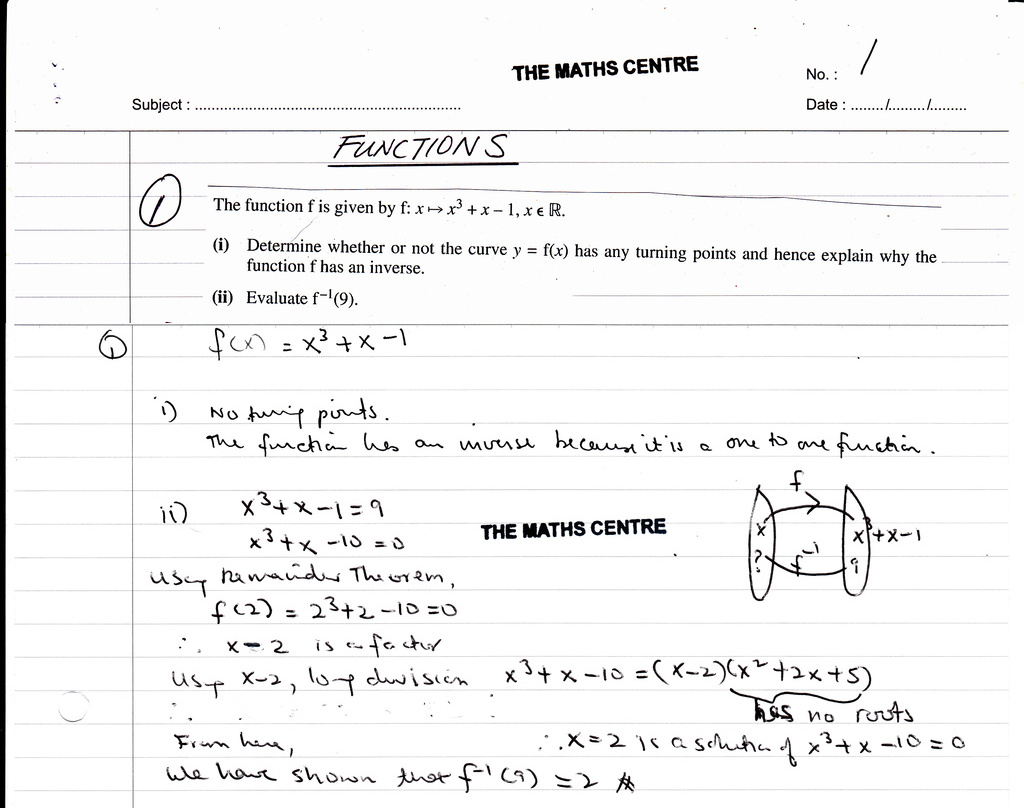 THE MATHS CENTRE
No. : 1
Subject : ................................................................
Date : ......../........./.........
FUNCTIONS
1
The function f is given by f: x ↦ x³ + x – 1, x ∈ ℝ.
(i) Determine whether or not the curve y = f(x) has any turning points and hence explain why the
function f has an inverse.
(ii) Evaluate f⁻¹(9).
1 f(x) = x³ + x − 1
i) No turning points.
The function has an inverse because it is a one to one function.
ii) x³ + x − 1 = 9
x³ + x − 10 = 0
THE MATHS CENTRE
f
x x³ + x − 1
? f⁻¹ 9
Using Remainder Theorem,
f(2) = 2³ + 2 − 10 = 0
∴ x − 2 is a factor
Using x−2, long division x³ + x − 10 = (x−2)(x² + 2x + 5)
has no roots
From here, ∴ x = 2 is a solution of x³ + x − 10 = 0
We have shown that f⁻¹(9) = 2